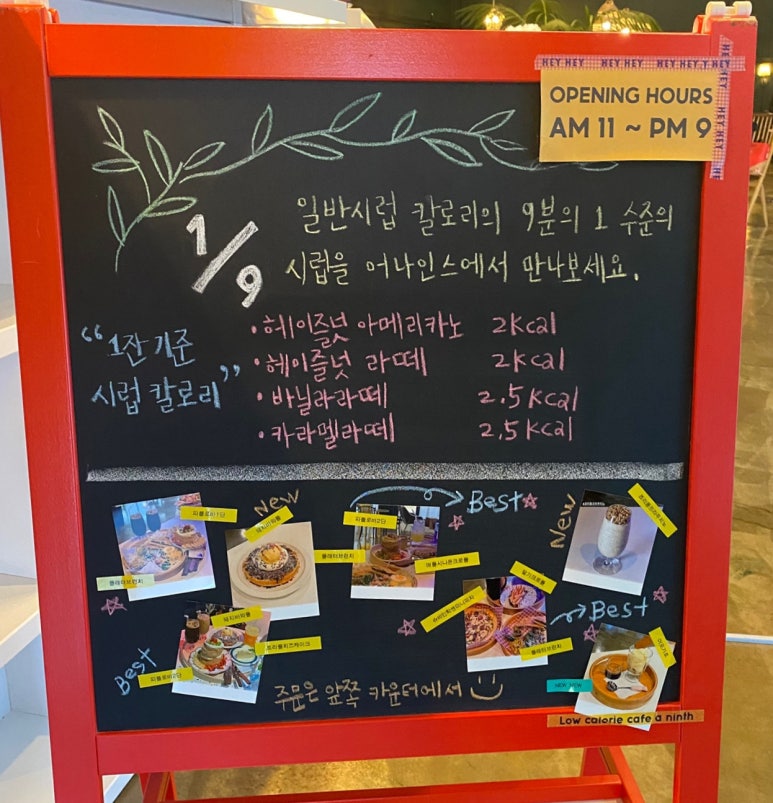 HEY HEY HEY HEY HEY HEY Y HEY
OPENING HOURS
AM 11 ~ PM 9
1/9
일반시럽 칼로리의 9분의 1 수준의
시럽을 어나인스에서 만나보세요.
"1잔 기준
시럽 칼로리"
• 헤이즐넛 아메리카노 2Kcal
• 헤이즐넛 라떼 2Kcal
• 바닐라라떼 2.5Kcal
• 카라멜라떼 2.5Kcal
New
Best
New
플래터브런치
플래터브런치
Best
플래터브런치
Best
주문은 앞쪽 카운터에서
Low calorie cafe a ninth